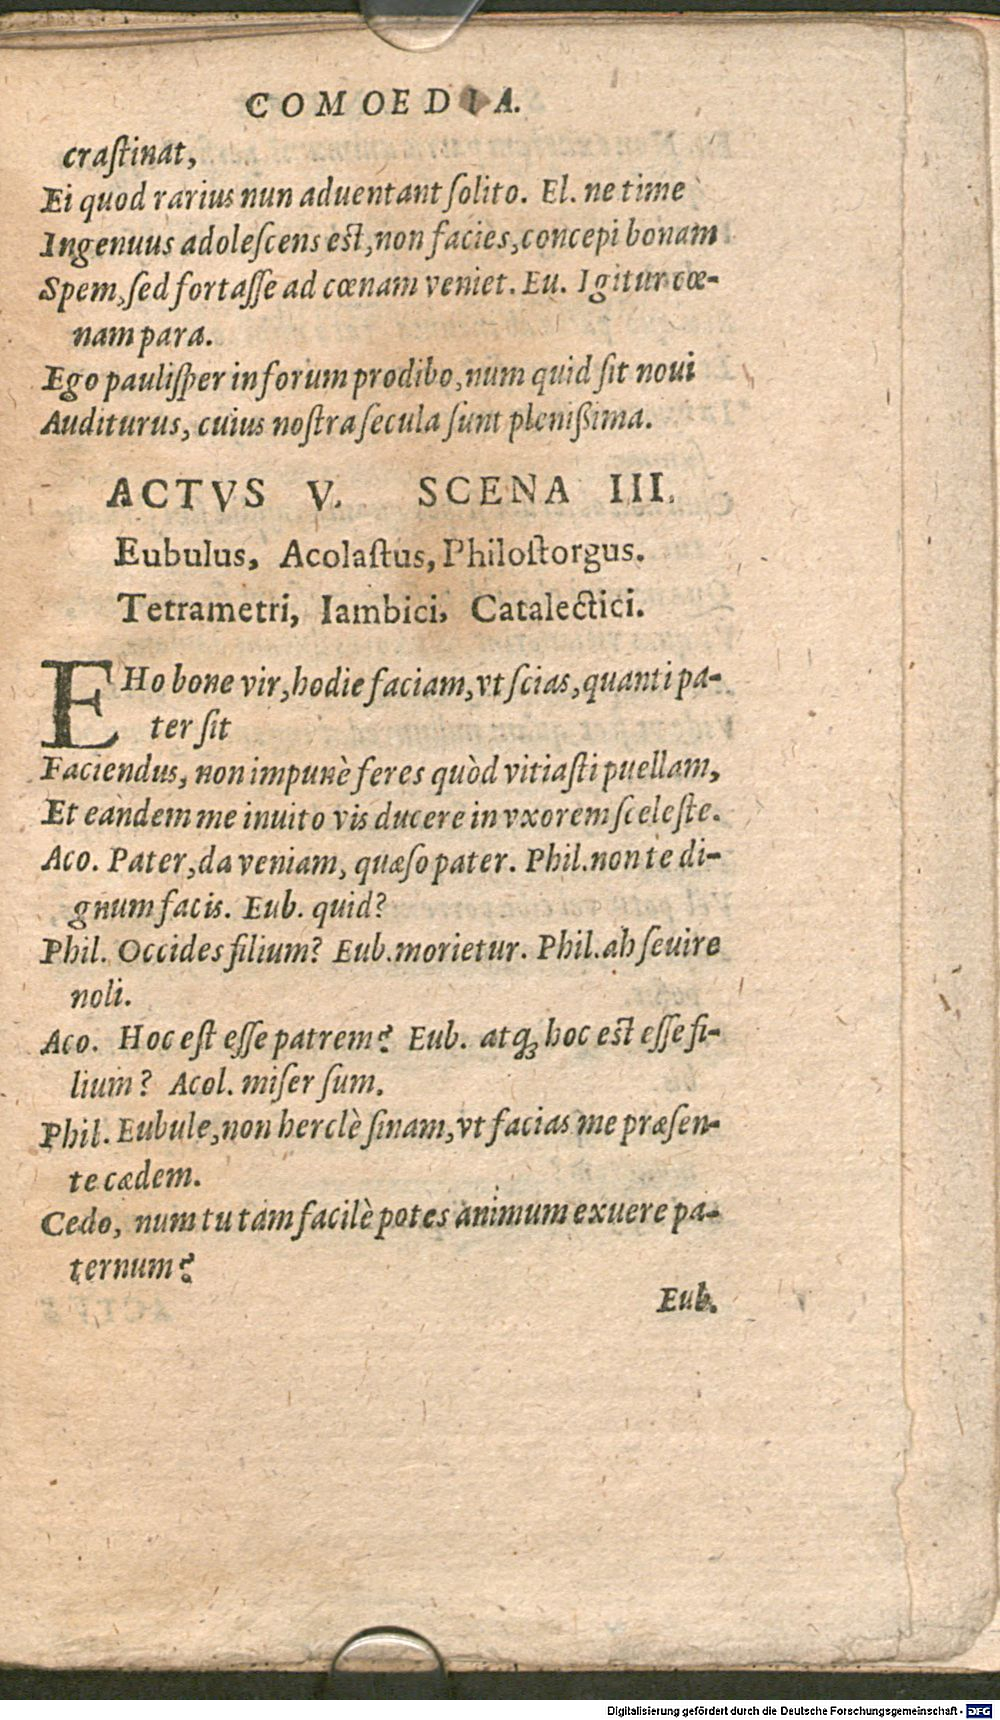 COMOEDIA.
craſtinat,
Ei quod rarius nun aduentant ſolito. El. ne time
Ingenuus adoleſcens eſt, non facies, concepi bonam
Spem, ſed fortaſſe ad cœnam veniet. Eu. Igitur cœ-
nam para.
Ego pauliſper in forum prodibo, num quid ſit noui
Auditurus, cuius noſtra ſecula ſunt pleniſsima.
ACTVS V. SCENA III.
Eubulus, Acolaſtus, Philoſtorgus.
Tetrametri, Iambici, Catalectici.
EHo bone vir, hodie faciam, vt ſcias, quanti pa-
ter ſit
Faciendus, non impunè feres quòd vitiaſti puellam,
Et eandem me inuito vis ducere in vxorem ſceleſte.
Aco. Pater, da veniam, quæſo pater. Phil. non te di-
gnum facis. Eub. quid?
Phil. Occides filium? Eub. morietur. Phil. ah ſeuire
noli.
Aco. Hoc eſt eſſe patrem? Eub. atq; hoc eſt eſſe fi-
lium? Acol. miſer ſum.
Phil. Eubule, non herclè ſinam, vt facias me præſen-
te cædem.
Cedo, num tu tam facilè potes animum exuere pa-
ternum?
Eub.
Digitalisierung gefördert durch die Deutsche Forschungsgemeinschaft - DFG